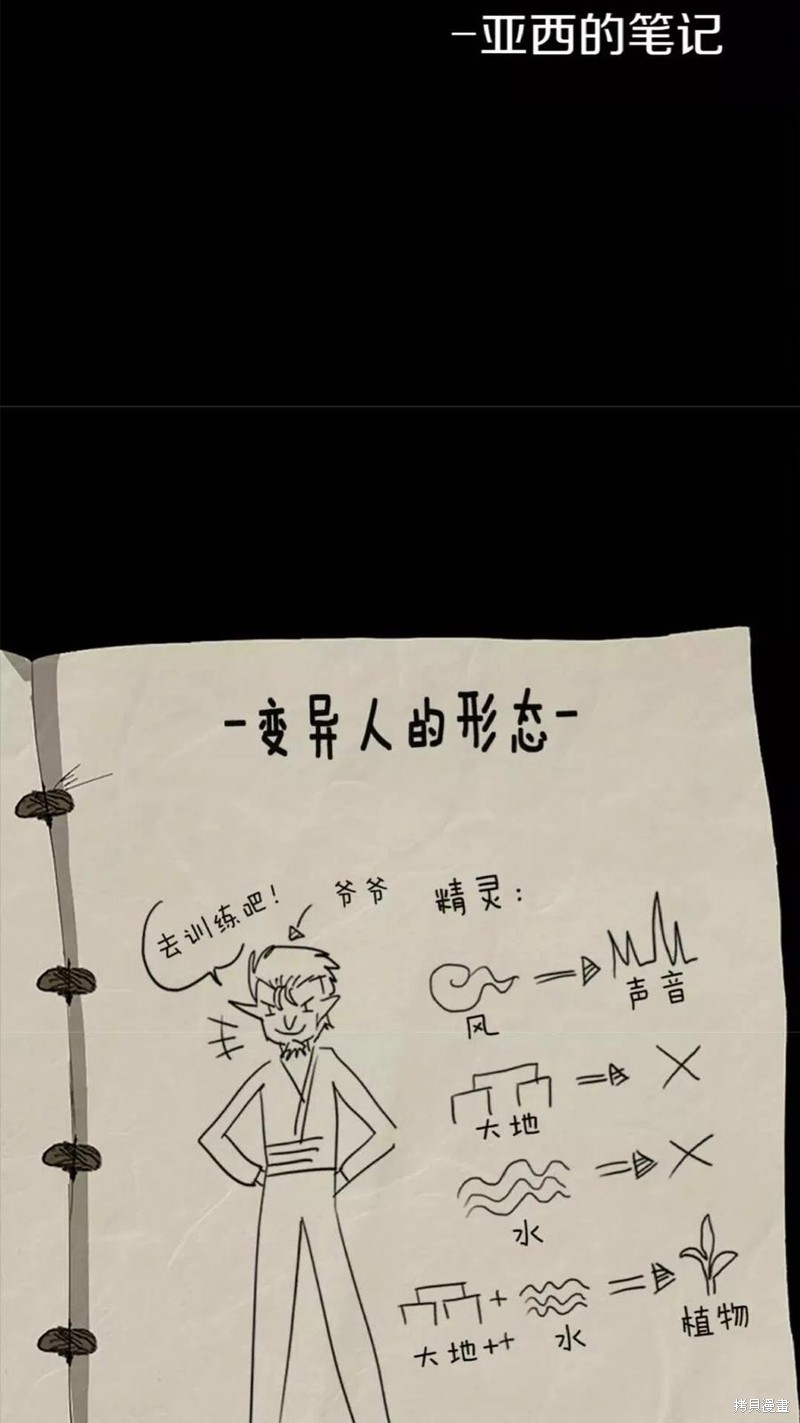 -亚西的笔记
-变异人的形态-
去训练吧!
爷爷
精灵:
风
声音
大地
水
大地++
水
植物
拷贝漫畫